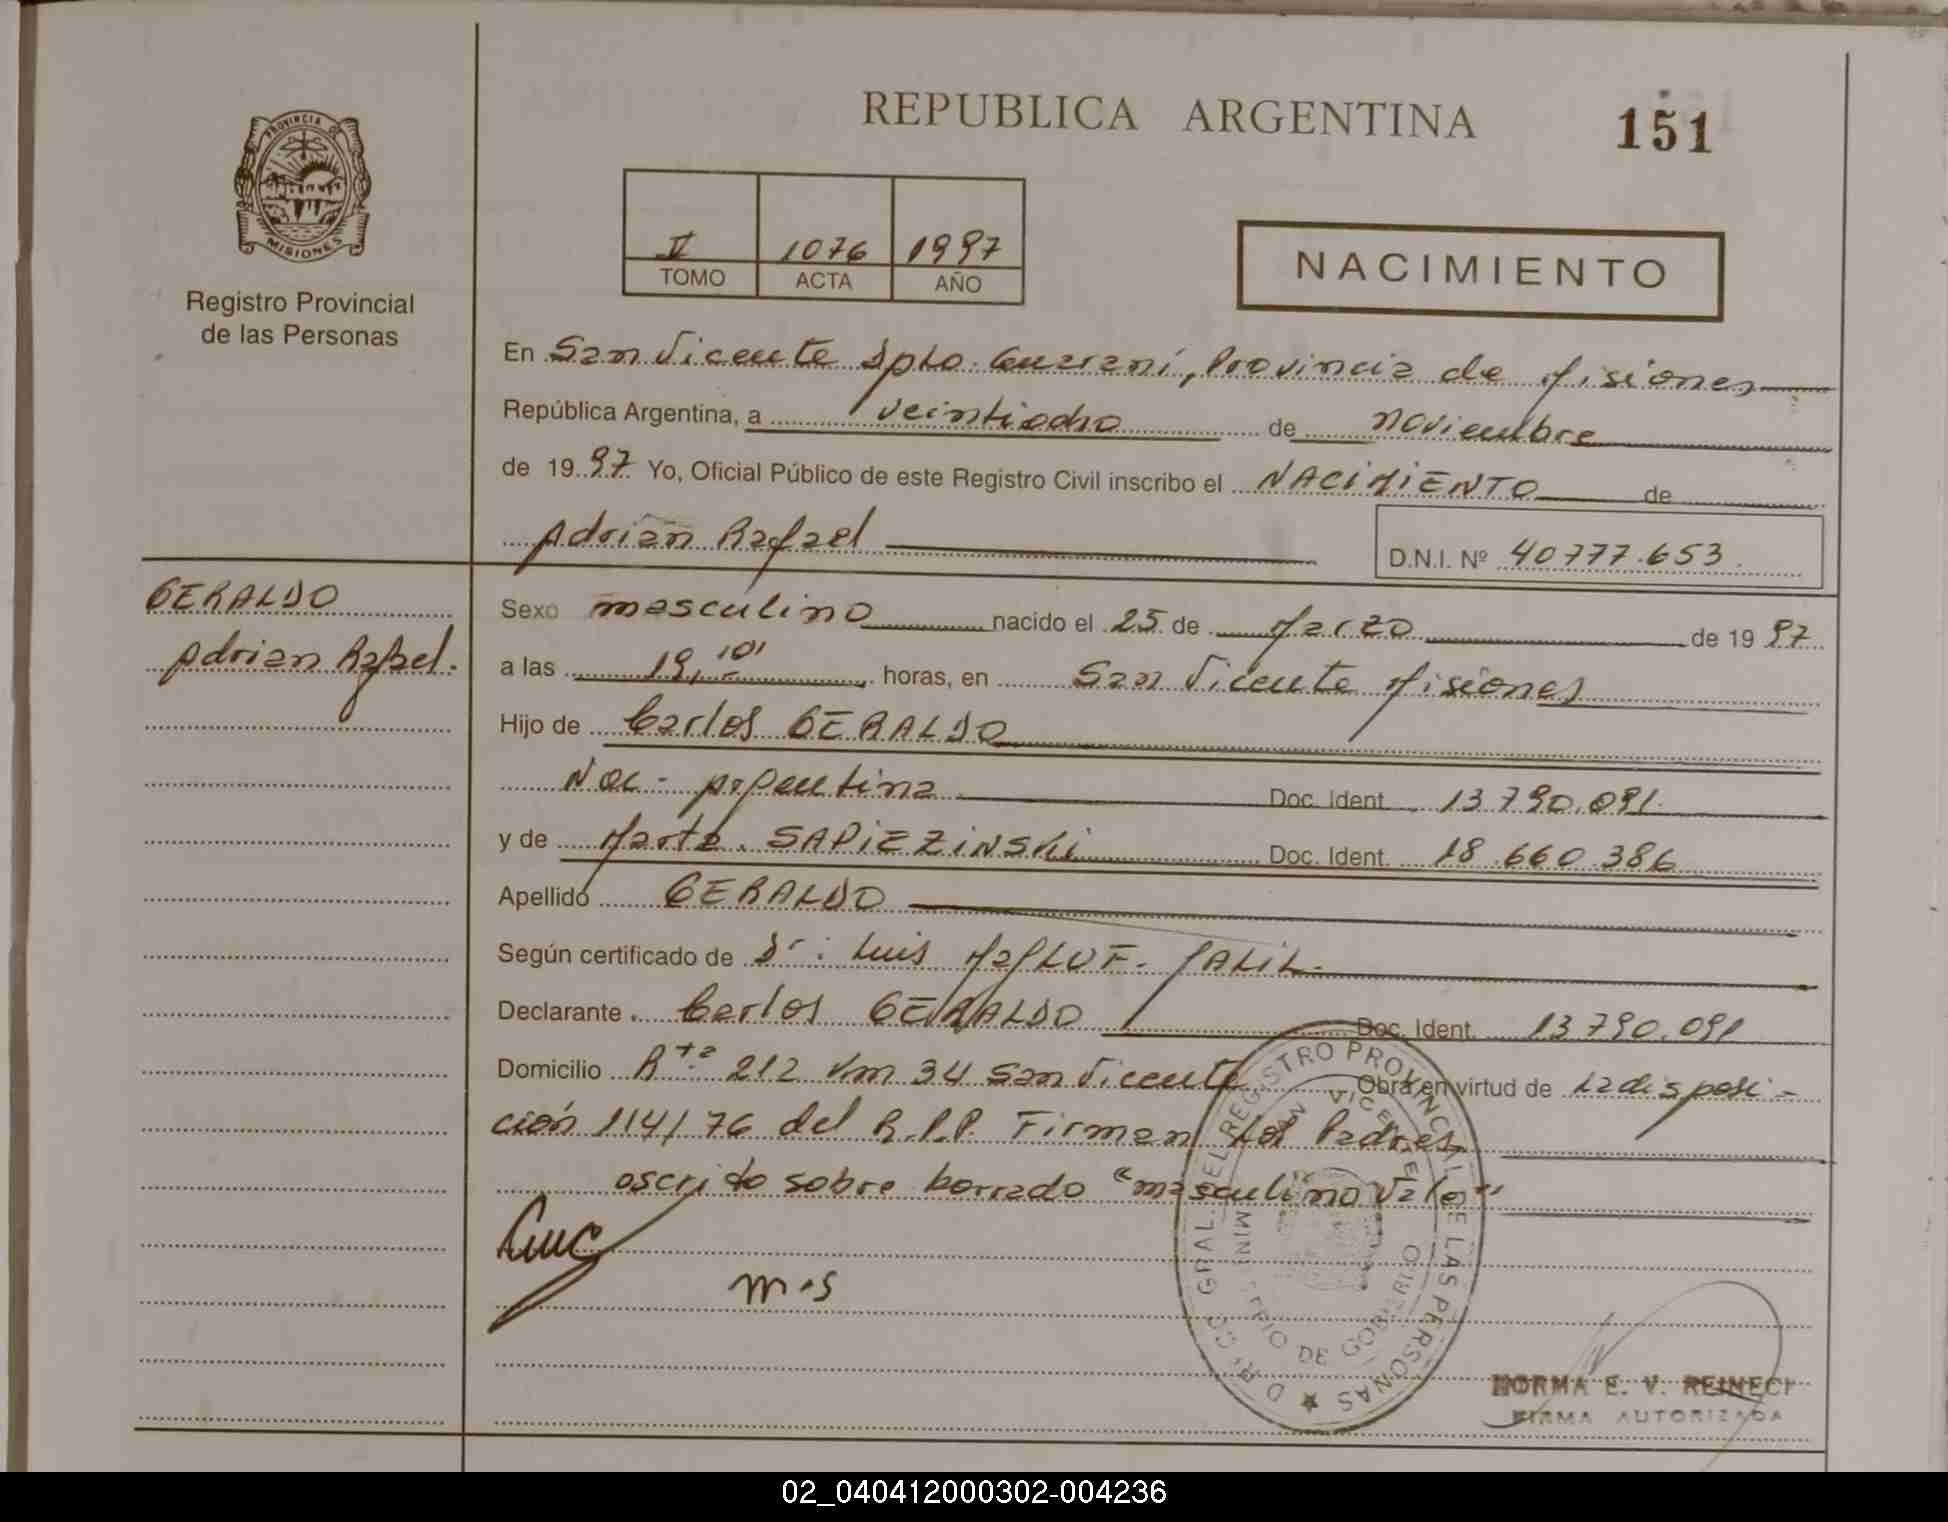 REPUBLICA ARGENTINA
151
PROVINCIA DE
MISIONES
Registro Provincial
de las Personas
V 1076 1997
TOMO ACTA AÑO
NACIMIENTO
En San Vicente Dpto. Guaraní, Provincia de Misiones
República Argentina, a veintiocho de noviembre
de 1997 Yo, Oficial Público de este Registro Civil inscribo el NACIMIENTO de
Adrian Rafael
D.N.I. Nº 40777.653
GERALDO
Adrian Rafael.
Sexo masculino nacido el 25 de Marzo de 1997
a las 19, horas, en San Vicente Misiones
Hijo de Carlos GERALDO
Nac- Argentina Doc. Ident. 13.790.091.
y de Marta SAPIEZINSKI Doc. Ident. 18.660.386
Apellido GERALDO
Según certificado de Dr: Luis MaGLUF. JALIL.
Declarante Carlos GERALDO Doc. Ident. 13.790.091
Domicilio Rta. 212 Km 34 San Vicente Obra en virtud de la disposi-
ción 114/76 del R.P.P. Firman los Padres
escrito sobre borrado "masculino vale"
m.s
REGISTRO PROVINCIAL DE LAS PERSONAS
SAN VICENTE
DE GOBIERNO
NORMA E. V. REINECK
FIRMA AUTORIZADA
02_040412000302-004236